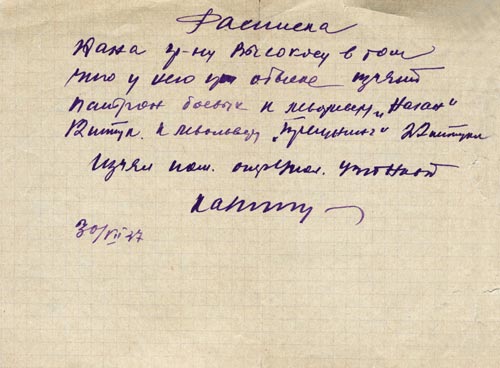 Расписка
Дана гр-ну Высокосу в том
что у него при обыске изъят
Патрон боевых к револьверу „Наган“
12 штук. к револьверу 22 штуки
Изъял пом. оперупол.
30/VII 37